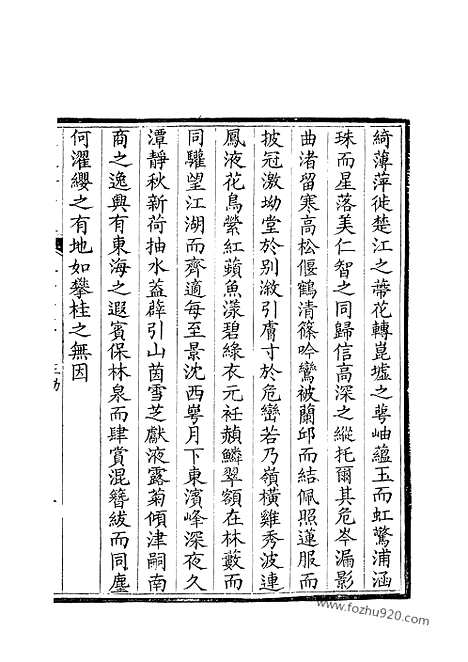 綺薄萍徙楚江之蔕花轉崑墟之萼岫蘊玉而虹驚浦涵
珠而星落美仁智之同歸信高深之縱托爾其危岑漏影
曲渚留寒高松偃鶴清篠吟鸞被蘭邱而結佩照蓮服而
披冠激坳堂於別漵引膚寸於危巒若乃嶺橫雞秀波連
鳳液花鳥縈紅蘋魚漾碧綠衣元衽赬鱗翠額在林藪而
同驩望江湖而齊適每至景沈西崿月下東濱峰深夜久
潭靜秋新荷抽水蓋薜引山茵雪芝獻液露菊傾津嗣南
商之逸興有東海之遐賓保林泉而肆賞混簪紱而同塵
何濯纓之有地如攀桂之無因
www.fozhu920.com